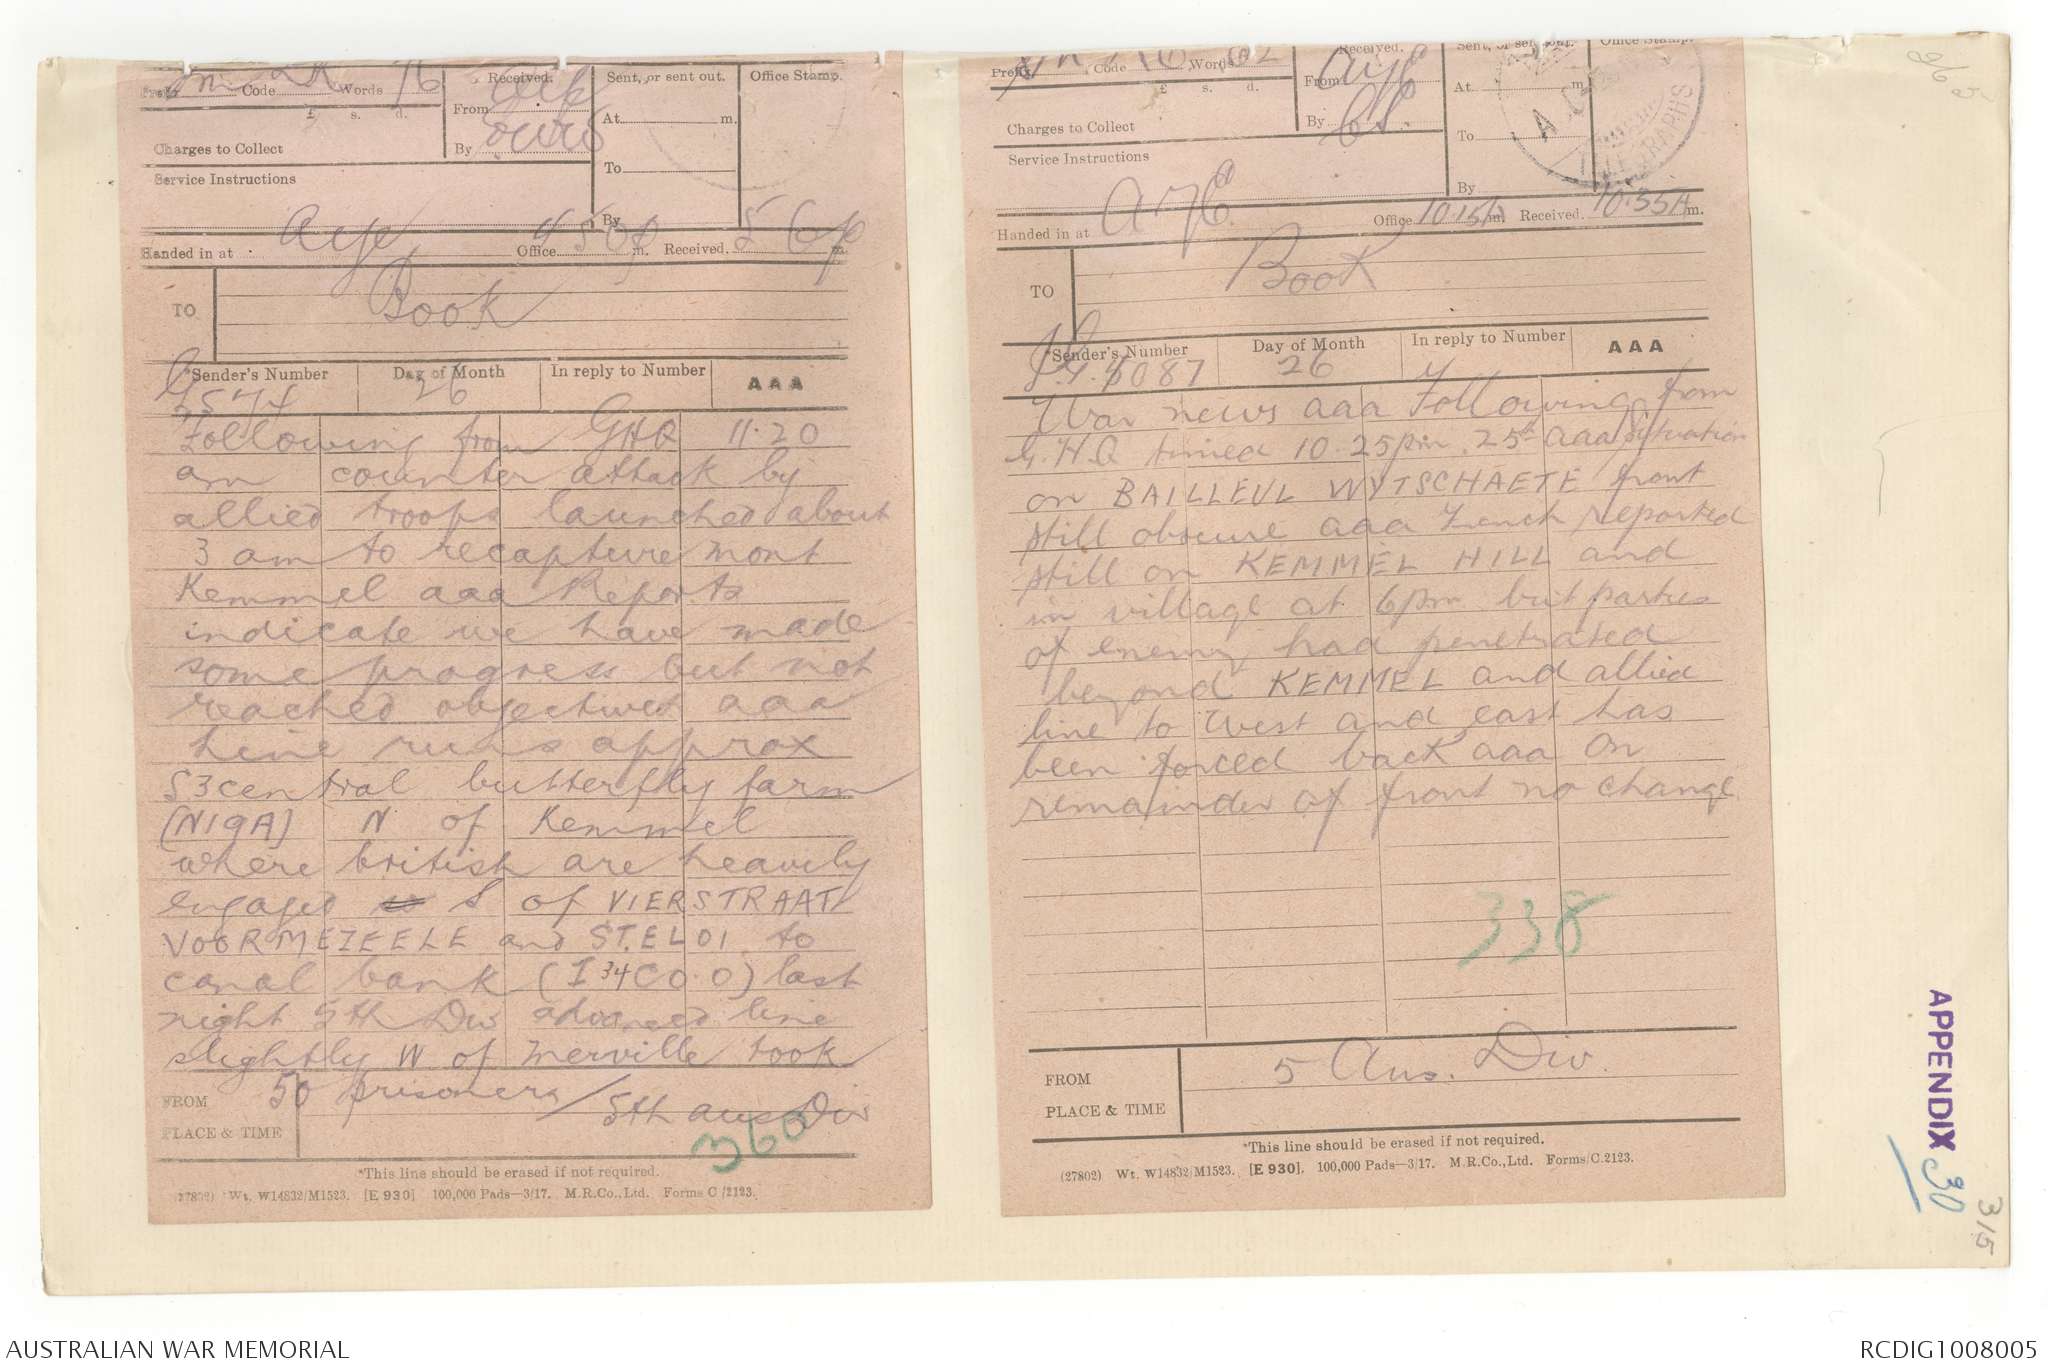 Prefix Code Words 76
£ s. d.
Charges to Collect
Service Instructions
Received.
From
By
Sent, or sent out.
At m.
To
By
Office Stamp.
Handed in at Office 450p m. Received. 5 6p m.
TO Book
*Sender's Number Day of Month In reply to Number AAA
G574 26
Following from GHQ 11.20
am counter attack by
allied troops launched about
3 am to recapture mont
Kemmel aaa Reports
indicate we have made
some progress but not
reached objectives aaa
Line runs approx
S3central butterfly farm
(N19A) N of Kemmel
where british are heavily
engaged S of VIERSTRAAT
VOORMEZEELE and ST.ELOI to
canal bank (I34C0.0) last
night 5th Div advanced line
slightly W of Merville took
50 prisoners / 5th aus Div
FROM
PLACE & TIME
360
*This line should be erased if not required.
(27802) Wt. W14832/M1523. [E 930] 100,000 Pads—3/17. M.R.Co., Ltd. Forms C/2123.
Prefix Code Words 102
£ s. d.
Charges to Collect
Service Instructions
Received.
From
By
Sent, or sent out.
At m.
To
By
Office Stamp.
TELEGRAPHS
Handed in at Office 10.15A m. Received. 10.35A m.
TO Book
*Sender's Number Day of Month In reply to Number AAA
5087 26
War news aaa Following from
G.H.Q timed 10.25pm 25th aaa Situation
on BAILLEUL WYTSCHAETE front
still obscure aaa French reported
still on KEMMEL HILL and
in village at 6pm but parties
of enemy had penetrated
beyond KEMMEL and allied
line to west and east has
been forced back aaa On
remainder of front no change
338
FROM
PLACE & TIME
5 Aus. Div.
*This line should be erased if not required.
(27802) Wt. W14832/M1523. [E 930]. 100,000 Pads—3/17. M.R.Co., Ltd. Forms/C.2123.
APPENDIX 30
315
AUSTRALIAN WAR MEMORIAL
RCDIG1008005